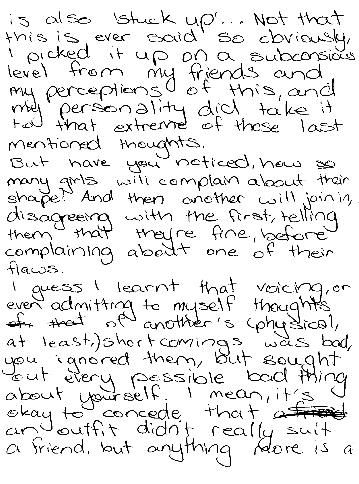 is also 'stuck up'... Not that
this is ever said so obviously,
I picked it up on a subconscious
level from my friends and
my perceptions of this, and
my personality did take it
to that extreme of those last
mentioned thoughts.
But have you noticed, how so
many girls will complain about their
shape? And then another will join in,
disagreeing with the first, telling
them that they're fine, before
complaining about one of their
flaws.
I guess I learnt that voicing, or
even admitting to myself thoughts
of that of another's (physical,
at least,) shortcomings was bad,
you ignored them, but sought
out every possible bad thing
about yourself. I mean, it's
okay to concede that a friend
an outfit didn't really suit
a friend, but anything more is a